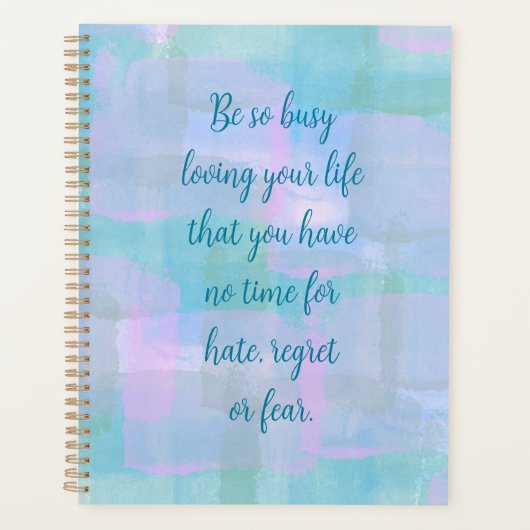 Be so busy
loving your life
that you have
no time for
hate, regret
or fear.